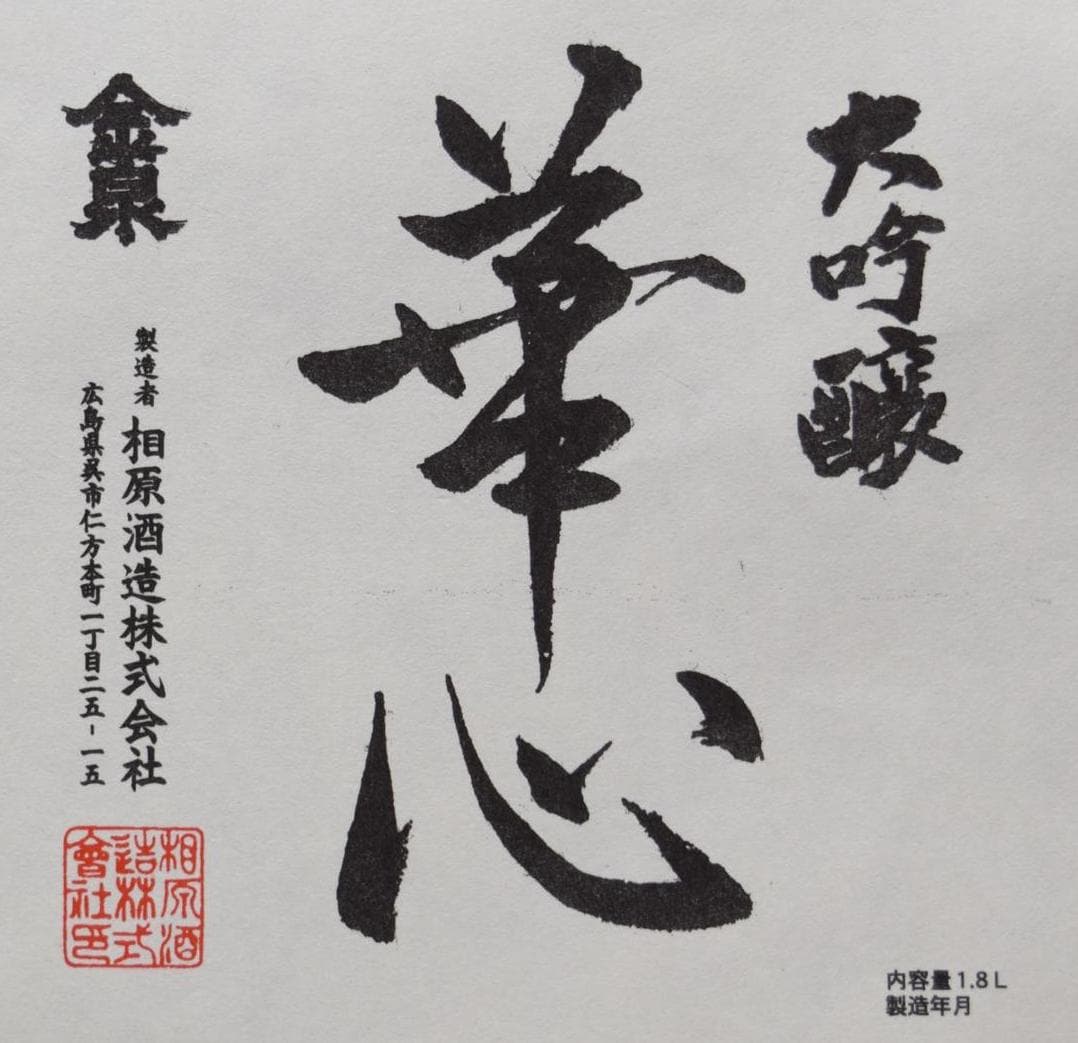 大吟醸
華心
金泉
製造者
相原酒造株式会社
広島県呉市仁方本町一丁目二五-一五
相原酒
造株式
會社印
内容量1.8L
製造年月